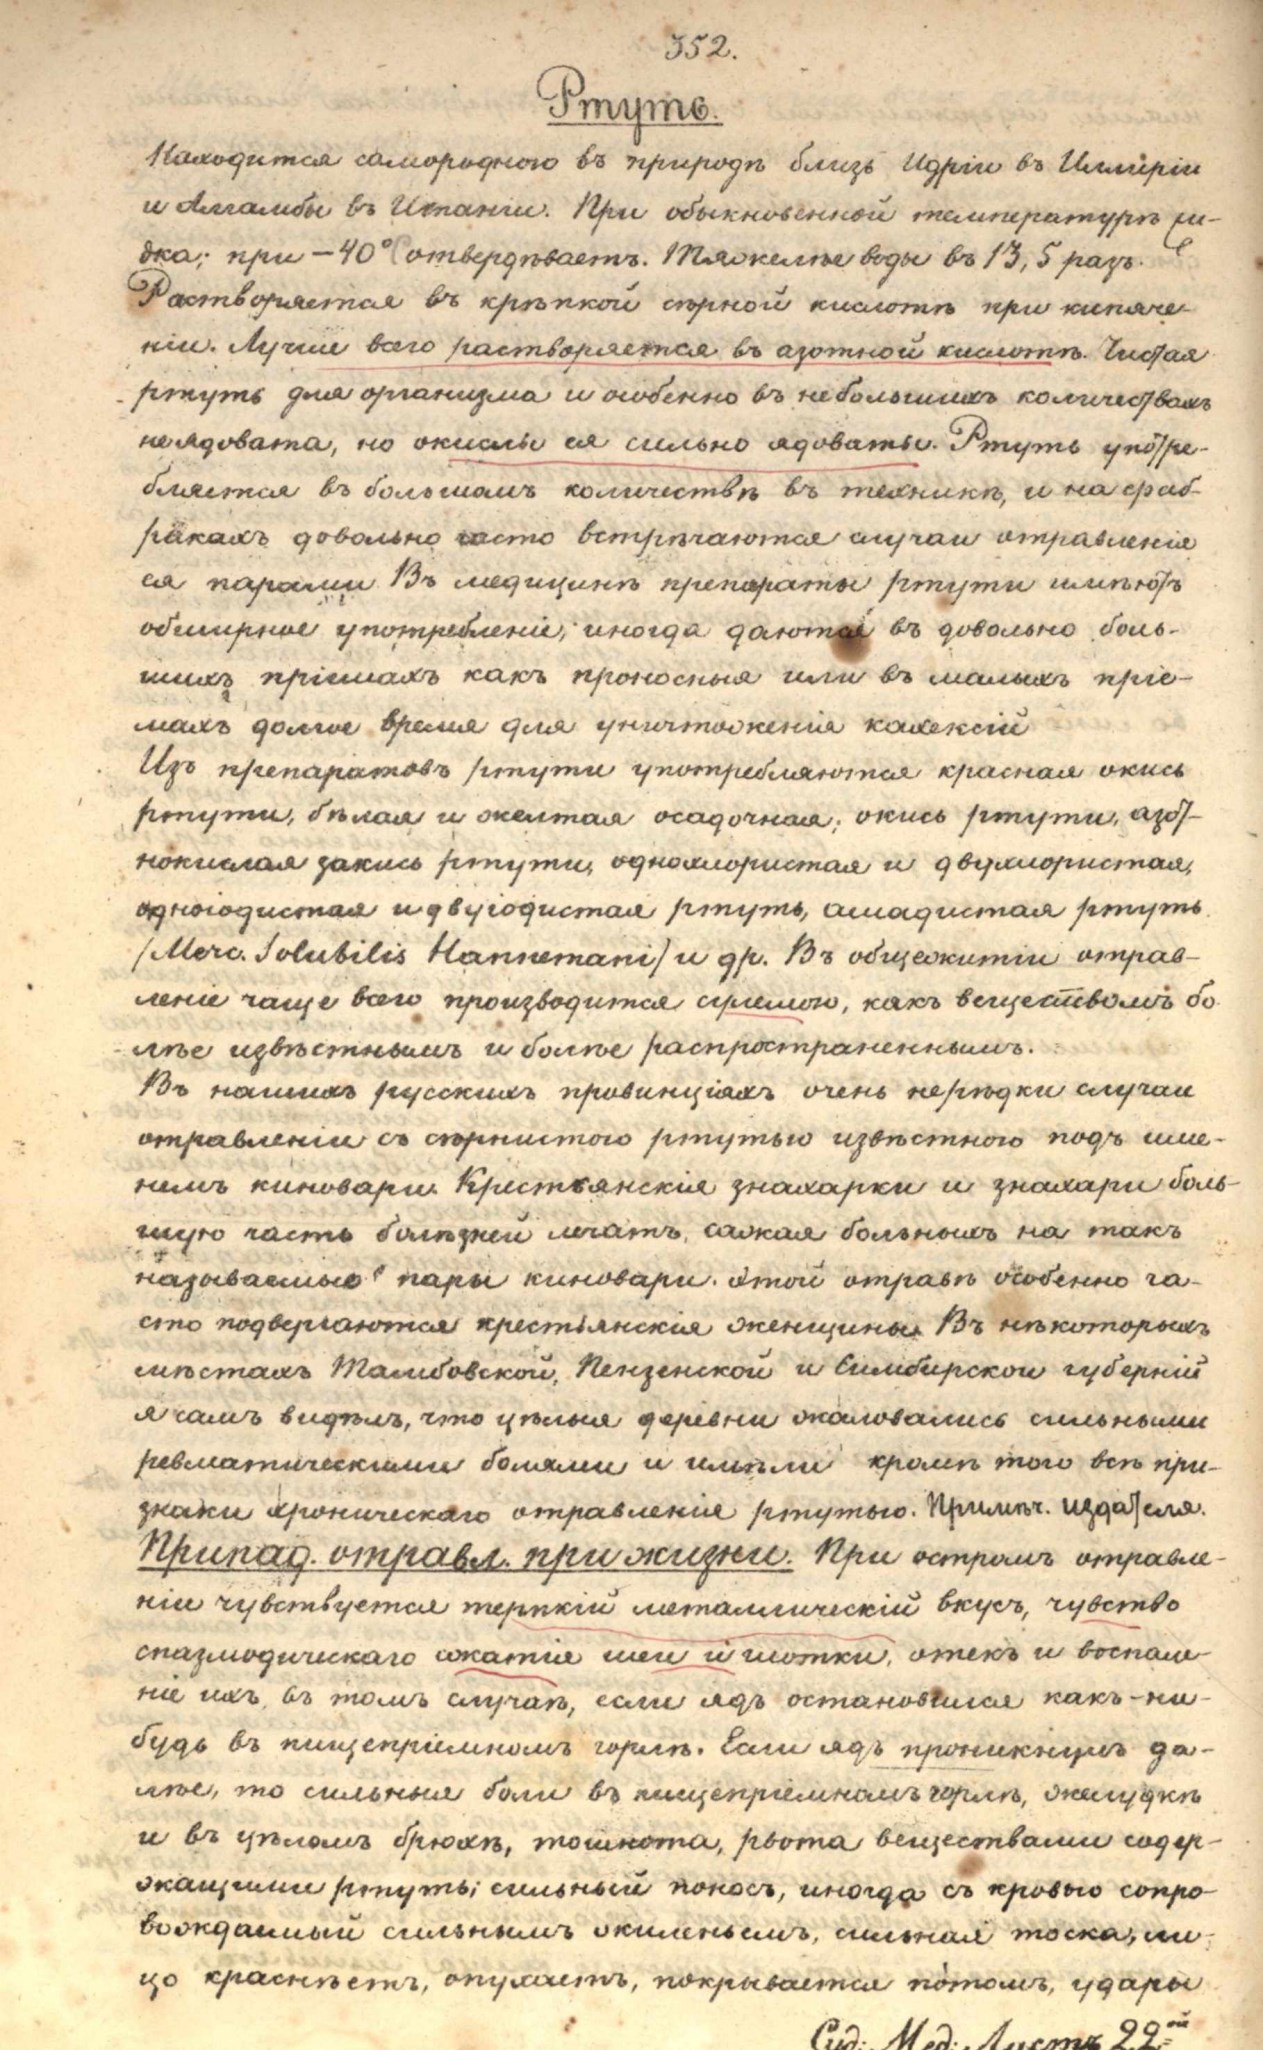 352.
Ртуть.
Находится самородною въ природѣ близь Идріи въ Иллиріи
и Алгамбы въ Испаніи. При обыкновенной температурѣ жи-
дка; при –40° отвердѣваетъ. Тяжелѣе воды въ 13,5 разъ.
Растворяется въ крѣпкой сѣрной кислотѣ при кипяче-
ніи. Лучше всего растворяется въ азотной кислотѣ. Чистая
ртуть для организма и особенно въ небольшихъ количествахъ
не ядовата, но окислы ея сильно ядоваты. Ртуть употре-
бляется въ большомъ количествѣ въ техникѣ, и на фаб-
рикахъ довольно часто встрѣчаются случаи отравленія
ея парами Въ медицинѣ препараты ртути имѣютъ
обширное употребленіе; иногда даются въ довольно боль-
шихъ пріемахъ какъ проносныя или въ малыхъ пріе-
махъ долгое время для уничтоженія кахексій
Изъ препаратовъ ртути употребляются красная окись
ртути, бѣлая и желтая осадочная; окись ртути, азот-
нокислая закись ртути, однохлористая и двухлористая,
одноіодистая и двуіодистая ртуть, амадистая ртуть
(Merc. Solubilis Hannemani) и др. Въ общежитіи отрав-
леніе чаще всего производится сулемою, какъ веществомъ бо-
лѣе извѣстнымъ и болѣе распространеннымъ.
Въ нашихъ русскихъ провинціяхъ очень нерѣдки случаи
отравленіи съ сѣрнистою ртутью извѣстного подъ име-
немъ киновари. Крестьянскія знахарки и знахари боль-
шую часть болѣзней лечатъ, сажая больныхъ на такъ
называемые пары киновари. Этой отравѣ особенно ча-
сто подвергаются крестьянскія женщины. Въ нѣкоторыхъ
мѣстахъ Тамбовской, Пензенской и Симбирской губерній
я самъ видѣлъ, что цѣлыя деревни жаловались сильными
ревматическими болями и имѣли кромѣ того всѣ при-
знаки хроническаго отравленія ртутью. Примѣч. издателя.
Припад. отравл. при жизни. При остромъ отравле-
ніи чувствуется терпкій металлическій вкусъ, чувство
спазмодическаго сжатія шеи и глотки, отекъ и воспале-
ніе ихъ, въ томъ случаѣ, если ядъ остановился какъ-ни-
будь въ пищепріемномъ горлѣ. Если ядъ проникнулъ да-
лѣе, то сильныя боли въ пищепріемномъ горлѣ, желудкѣ
и въ цѣломъ брюхѣ, тошнота, рвота веществами содер-
жащими ртуть; сильный поносъ, иногда съ кровью сопро-
вождаемый сильнымъ жиленьемъ, сильная тоска; ли-
цо краснѣетъ, опухаетъ, покрывается потомъ, удары
Суд: Мед: Листъ 22ой